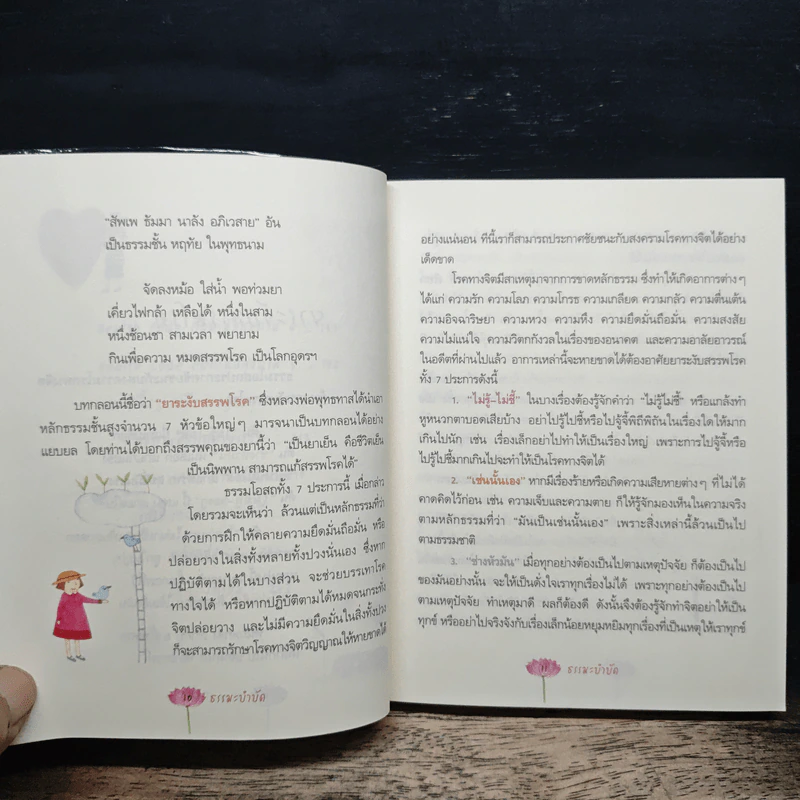 "สัพเพ ธัมมา นาลัง อภิเวสาย" อัน
เป็นธรรมชั้น หฤทัย ในพุทธนาม
จัดลงหม้อ ใส่น้ำ พอท่วมยา
เคี่ยวไฟกล้า เหลือได้ หนึ่งในสาม
หนึ่งช้อนชา สามเวลา พยายาม
กินเพื่อความ หมดสรรพโรค เป็นโลกอุดรฯ
บทกลอนนี้ชื่อว่า "ยาระงับสรรพโรค" ซึ่งหลวงพ่อพุทธทาสได้นำเอา
หลักธรรมชั้นสูงจำนวน 7 หัวข้อใหญ่ๆ มารจนาเป็นบทกลอนได้อย่าง
แยบยล โดยท่านได้บอกถึงสรรพคุณของยานี้ว่า "เป็นยาเย็น คือชีวิตเย็น
เป็นนิพพาน สามารถแก้สรรพโรคได้"
ธรรมโอสถทั้ง 7 ประการนี้ เมื่อกล่าว
โดยรวมจะเห็นว่า ล้วนแต่เป็นหลักธรรมที่ว่า
ด้วยการฝึกให้คลายความยึดมั่นถือมั่น หรือ
ปล่อยวางในสิ่งทั้งหลายทั้งปวงนั่นเอง ซึ่งหาก
ปฏิบัติตามได้ในบางส่วน จะช่วยบรรเทาโรค
ทางใจได้ หรือหากปฏิบัติตามได้หมดจนกระทั่ง
จิตปล่อยวาง และไม่มีความยึดมั่นในสิ่งทั้งปวง
ก็จะสามารถรักษาโรคทางจิตวิญญาณให้หายขาดได้
10 ธรรมะบำบัด
อย่างแน่นอน ทีนี้เราก็สามารถประกาศชัยชนะกับสงครามโรคทางจิตได้อย่าง
เด็ดขาด
โรคทางจิตมีสาเหตุมาจากการขาดหลักธรรม ซึ่งทำให้เกิดอาการต่างๆ
ได้แก่ ความรัก ความโลภ ความโกรธ ความเกลียด ความกลัว ความตื่นเต้น
ความอิจฉาริษยา ความหวง ความหึง ความยึดมั่นถือมั่น ความสงสัย
ความไม่แน่ใจ ความวิตกกังวลในเรื่องของอนาคต และความอาลัยอาวรณ์
ในอดีตที่ผ่านไปแล้ว อาการเหล่านี้จะหายขาดได้ต้องอาศัยยาระงับสรรพโรค
ทั้ง 7 ประการดังนี้
1. "ไม่รู้-ไม่ชี้" ในบางเรื่องต้องรู้จักคำว่า "ไม่รู้ไม่ชี้" หรือแกล้งทำ
หูหนวกตาบอดเสียบ้าง อย่าไปรู้ไปชี้หรือไปจู้จี้พิถีพิถันในเรื่องใดให้มาก
เกินไปนัก เช่น เรื่องเล็กอย่าไปทำให้เป็นเรื่องใหญ่ เพราะการไปจู้จี้หรือ
ไปรู้ไปชี้มากเกินไปจะทำให้เป็นโรคทางจิตได้
2. "เช่นนั้นเอง" หากมีเรื่องร้ายหรือเกิดความเสียหายต่างๆ ที่ไม่ได้
คาดคิดไว้ก่อน เช่น ความเจ็บและความตาย ก็ให้รู้จักมองเห็นในความจริง
ตามหลักธรรมที่ว่า "มันเป็นเช่นนั้นเอง" เพราะสิ่งเหล่านี้ล้วนเป็นไป
ตามธรรมชาติ
3. "ช่างหัวมัน" เมื่อทุกอย่างต้องเป็นไปตามเหตุปัจจัย ก็ต้องเป็นไป
ของมันอย่างนั้น จะให้เป็นดั่งใจเราทุกเรื่องไม่ได้ เพราะทุกอย่างต้องเป็นไป
ตามเหตุปัจจัย ทำเหตุมาดี ผลก็ต้องดี ดังนั้นจึงต้องรู้จักทำจิตอย่าให้เป็น
ทุกข์ หรืออย่าไปจริงจังกับเรื่องเล็กน้อยหยุมหยิมทุกเรื่องที่เป็นเหตุให้เราทุกข์
11 ธรรมะบำบัด